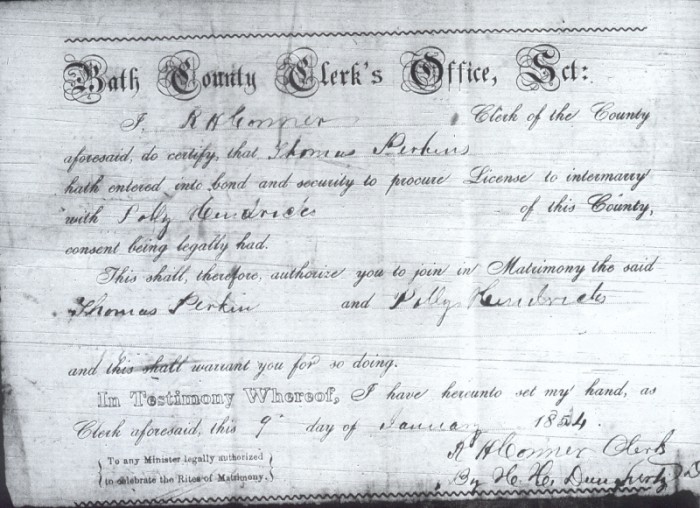 Bath County Clerk's Office, Sct:
I, R H Conner Clerk of the County
aforesaid, do certify, that Thomas Perkins
hath entered into bond and security to procure License to intermarry
with Polly Hendricks of this County,
consent being legally had.
This shall, therefore, authorize you to join in Matrimony the said
Thomas Perkin and Polly Hendricks
and this shall warrant you for so doing.
In Testimony Whereof, I have hereunto set my hand, as
Clerk aforesaid, this 9" day of January 1854.
R H Conner Clerk
To any Minister legally authorized
to celebrate the Rites of Matrimony.
By H. H. Daugherty D